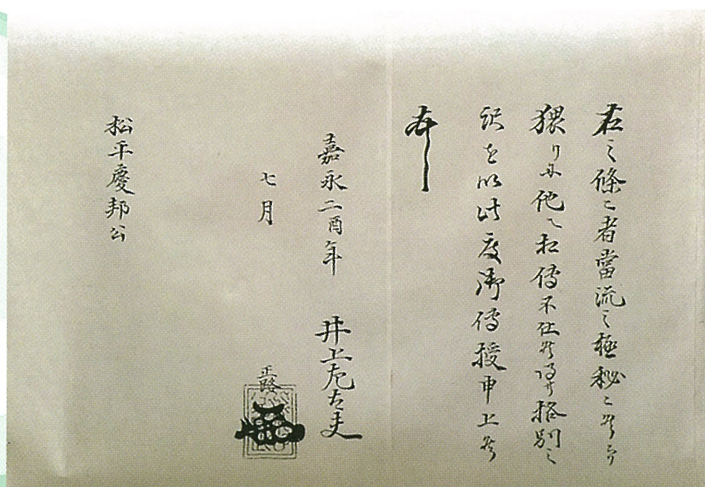 右之條々者當流之極秘ニ候間
猥り尓他へ相傳不仕候得共格別之
訳を以此度御傳授申上候
以上
嘉永二酉年
七月
井上左太夫
正路
松平慶邦公